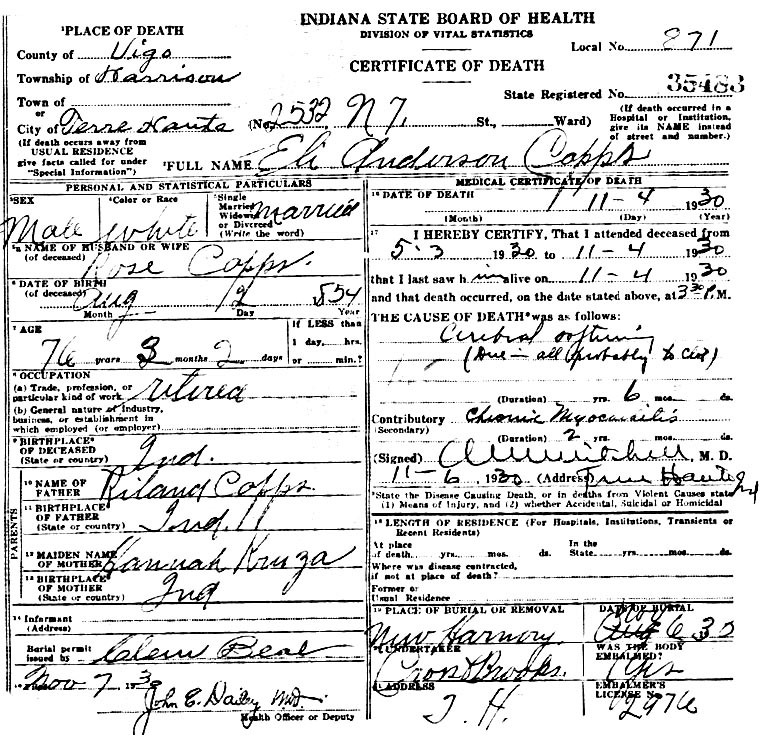 INDIANA STATE BOARD OF HEALTH
DIVISION OF VITAL STATISTICS
Local No. 871
CERTIFICATE OF DEATH
State Registered No. 35483
¹PLACE OF DEATH
County of Vigo
Township of Harrison
Town of
or
City of Terre Haute (No. 2532 N 7. St., Ward)
(If death occurs away from
USUAL RESIDENCE
give facts called for under
"Special Information")
(If death occurred in a
Hospital or Institution,
give its NAME instead
of street and number.)
²FULL NAME Eli Anderson Copps
PERSONAL AND STATISTICAL PARTICULARS
³SEX Male
⁴Color or Race White
⁵Single
Married
Widowed
or Divorced
(Write the word) Married
NAME OF HUSBAND OR WIFE
(of deceased) Rose Copps.
⁶DATE OF BIRTH
(of deceased) Aug 12 854
Month Day Year
⁷AGE
76 years 3 months 2 days
If LESS than
1 day, hrs.
or min.?
⁸OCCUPATION
(a) Trade, profession, or
particular kind of work retired
(b) General nature of Industry,
business, or establishment in
which employed (or employer)
⁹BIRTHPLACE
OF DECEASED
(State or country) Ind.
PARENTS
¹⁰NAME OF
FATHER Riland Copps
¹¹BIRTHPLACE
OF FATHER
(State or country) Ind
¹²MAIDEN NAME
OF MOTHER Hannah
¹³BIRTHPLACE
OF MOTHER
(State or country) Ind
¹⁴Informant
(Address)
Burial permit
issued by
Nov 7 1930
John E. Dailey MD.
Health Officer or Deputy
MEDICAL CERTIFICATE OF DEATH
¹⁶DATE OF DEATH 11-4 1930
(Month) (Day) (Year)
¹⁷I HEREBY CERTIFY, That I attended deceased from
5-3 1930 to 11-4 1930
that I last saw him alive on 11-4 1930
and that death occurred, on the date stated above, at 3:30 P.M.
THE CAUSE OF DEATH* was as follows:
Cerebral softening
(Due in all probably to
(Duration) yrs. 6 mos. ds.
Contributory Chronic Myocarditis
(Secondary)
(Duration) 2 yrs. mos. ds.
(Signed) M. D.
11-6 1930 (Address) Terre Haute Ind
*State the Disease Causing Death, or in deaths from Violent Causes state
(1) Means of Injury, and (2) whether Accidental, Suicidal or Homicidal
¹⁸LENGTH OF RESIDENCE (For Hospitals, Institutions, Transients or
Recent Residents)
At place
of death. yrs. mos. ds.
In the
State. yrs. mos. ds.
Where was disease contracted,
if not at place of death?
Former or
Usual Residence
¹⁹PLACE OF BURIAL OR REMOVAL
New Harmony
DATE OF BURIAL
Nov 6 30
²⁰UNDERTAKER
WAS THE BODY
EMBALMED? Yes
ADDRESS
T. H.
EMBALMER'S
LICENSE No. 2976